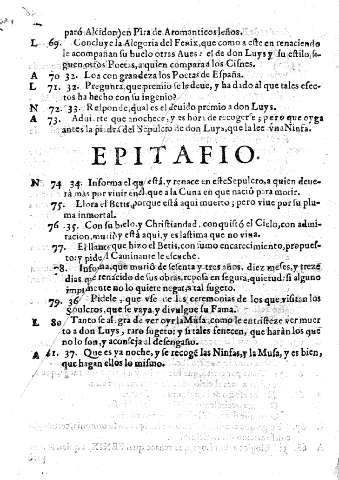 paró Alcidon) en Pira de Aromanticos leños.
L 69. Concluye la Alegoria del Fenix, que como a este en renaciendo
le acompañan su buelo otras Aues: el de don Luys y su estilo, se-
guen otros Poetas, a quien compara a los Cisnes.
A 70 32. Loa con grandeza los Poetas de España.
L 71. 32. Pregunta, que premio se le deue, y ha dado al que tales efec-
tos ha hecho con su ingenio?
N 72. 33. Responde, qual es el deuido premio a don Luys.
A 73. Aduierte que anochece, y es hora de recogerse; pero que oyga
antes la piedra del Sepulcro de don Luys, que la lee vna Ninfa.
EPITAFIO.
N 74 34. Informa el que está, y renace en este Sepulcro, a quien deue-
rá mas por viuir en el, que a la Cuna en que nació para morir.
75. Llora el Betis, porque está aqui muerto; pero viue por su plu-
ma inmortal.
76 35. Con su buelo, y Christiandad, conquistó el Cielo, con admi-
racion, murió y está aqui, y es lastima que no viua.
77. El llanto que hizo el Betis, con sumo encarecimiento, propues-
to; y pide al Caminante le escuche.
78. Informa, que murió de setenta y tres años, diez meses, y treze
dias, que renacido de sus obras, reposa en segura, quietud: si alguno
no lo quiere negar a tal sugeto.
79. 36 Pidele, que vse de las ceremonias de los que visitan los
que se vaya, y diuulgue su Fama.
L 80 Tanto se alegra de ver oyr la Musa, como le entristeze ver muer-
to a don Luys, raro sugeto: y si tales fenecen, que harán los que
no lo son, y aconseja al desengaño.
A 81. 37. Que es ya noche, y se recogē las Ninfas, y la Musa, y es bien,
que hagan ellos lo mismo.